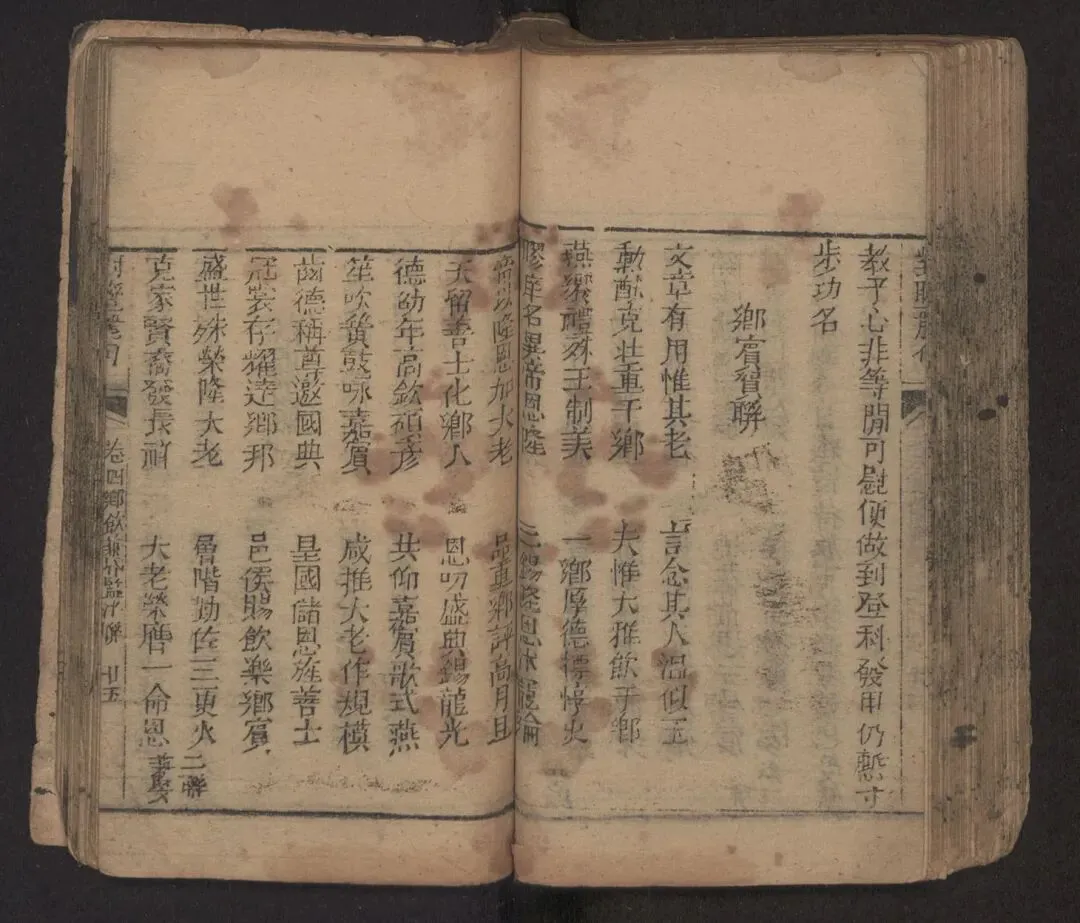 教子心非等閒可慰便做到登科發甲仍慙寸
步功名
鄉賓賀聯
文章有用惟其老 言念其人溫似玉
勳猷克壯重于鄉 夫惟大雅飲于鄉
燕饗禮殊王制美 一鄉厚德標
膠庠名 帝恩隆
隆恩加大老 品重鄉評高月旦
天留善士化鄉人 恩叨盛典錫龍光
德劭年高欽碩彥 共仰嘉賓歌式燕
笙吹簧鼓咏嘉賓 咸推大老作規模
齒德稱尊邀國典 是國儲恩旌善士
冠裳存耀達鄉邦 邑侯賜飲樂鄉賓
盛世殊榮隆大老 三更火 二聯
克家賢裔發長祥 大老榮膺一命恩
卷四鄉飲 聯 廿五